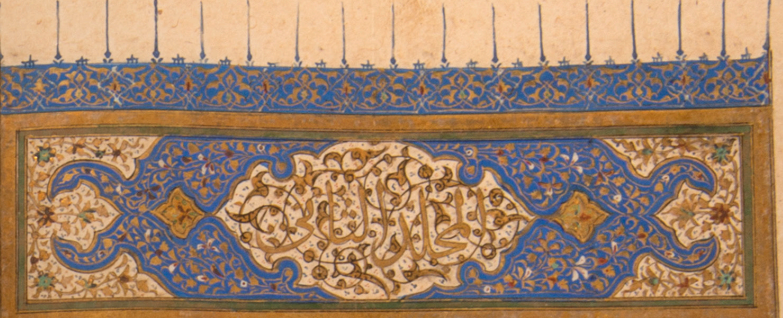 المجلد الثاني